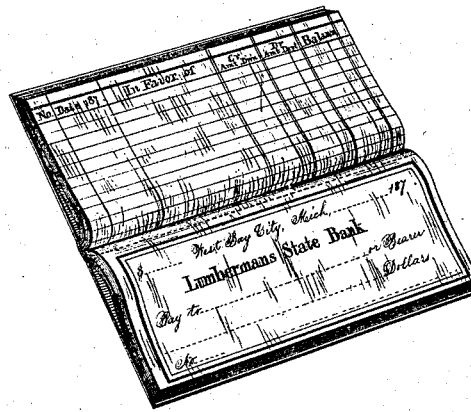 No. Date 187 In Favor of Cr. Amt. Dep. Dr. Amt. Dr'n Balance
West Bay City, Mich, 187
$
Lumbermans State Bank
Pay to or Bearer
Dollars
No.